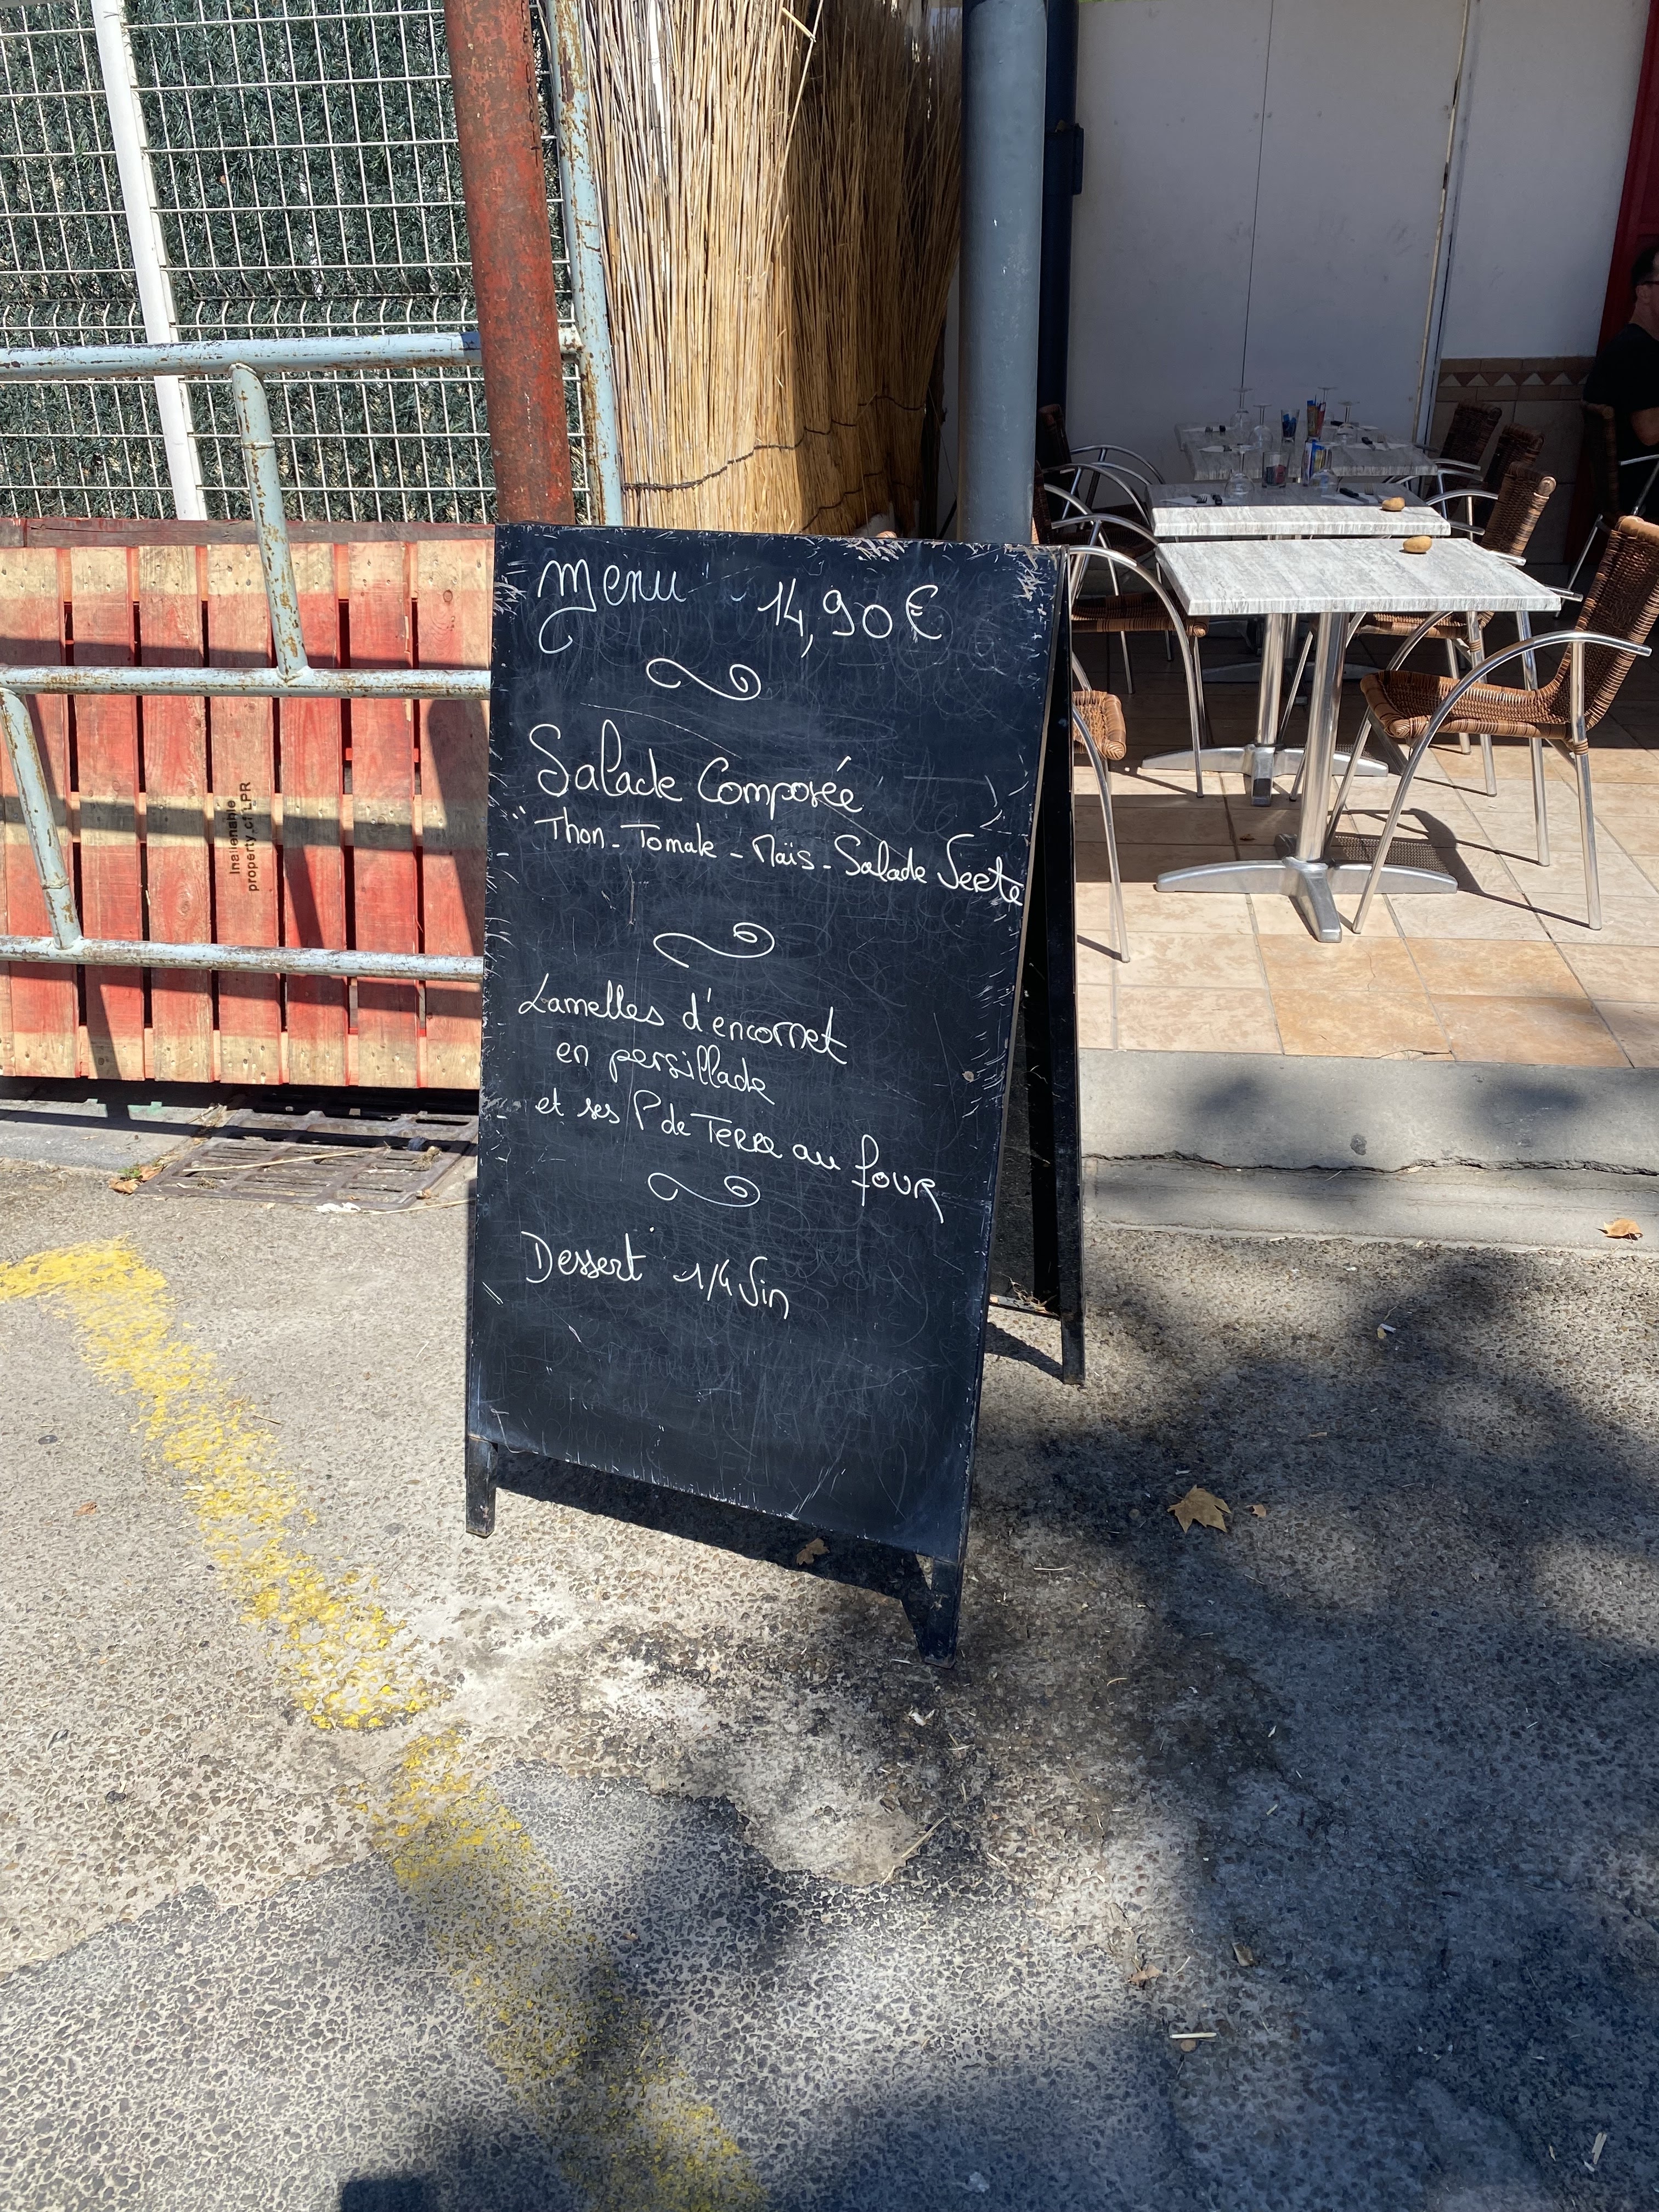 Menu 14,90€
Salade Composée
Thon - Tomate - Maïs - Salade Verte
Lamelles d'encornet
en persillade
et ses P de Terre au four
Dessert 1/4 Vin
Inalienable
property of LPR